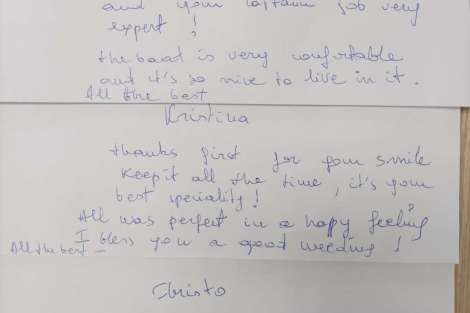 and your captain job very
expert !
the boad is very comfortable
and it's so nice to live in it.
All the best
Kristina
thanks first for your smile
keep it all the time, it's your
best speriality !
All was perfect in a happy feeling
I bless you a good weeding !
All the best –
Christo